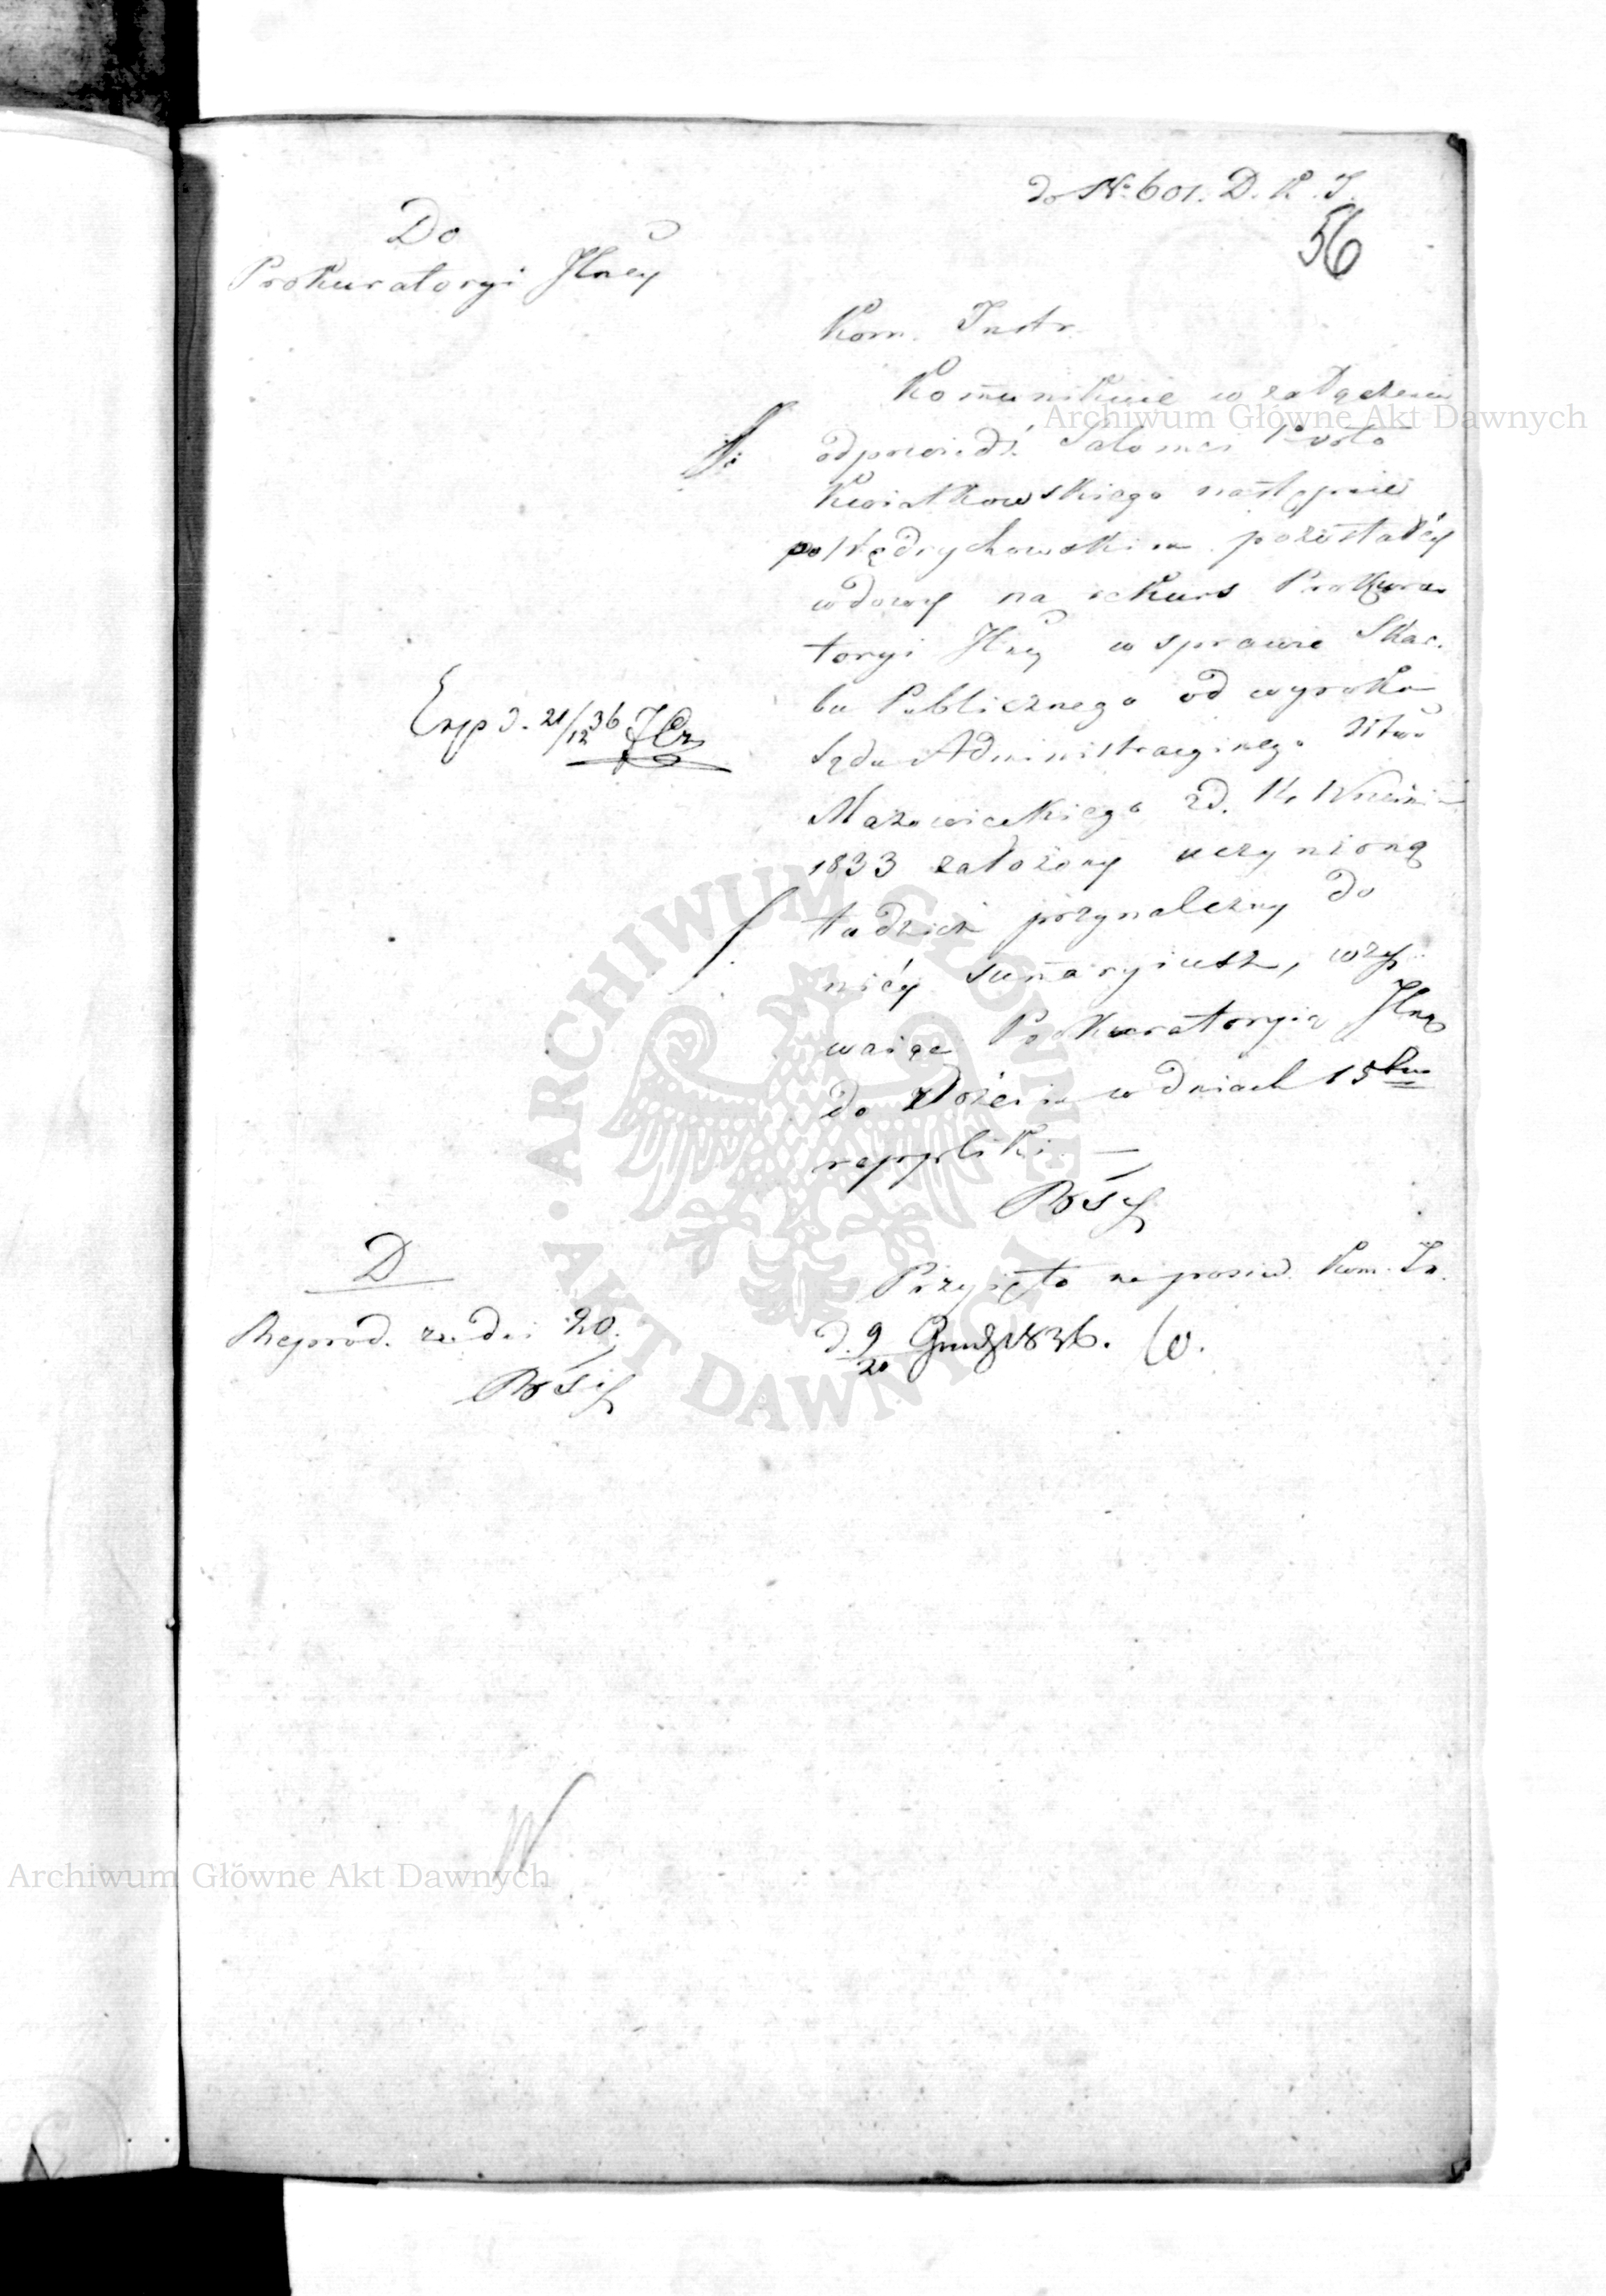 do No 601. D. K. I.
56
Do
Prokuratoryi Jlney
Kom. Instr.
Kom̄unikuie w załączeniu
odpowiedź Salomei 1o voto
Kwiatkowskiego następnie
po Jędrychowskim pozostałéy
wdowy na rekurs Prokura-
toryi Jlney w sprawie Skar-
bu Publicznego od wyroku
Sądu Administracyinego Wtwa
Mazowieckiego z d. 14 Wrześn
1833 założony uczynioną
tudzież przynależny do
niéy sum̄aryiusz, wzy-
waiąc Prokuratoryią Jlną
do złożenia w dniach 15tu
repliki. —
Exp d. 21/12 36
Przyjęto na posied. Kom. In.
d. 9/21 Grud 1836.
D
Reprod. za dni 20.
W
Archiwum Główne Akt Dawnych
ARCHIWUM GŁÓWNE AKT DAWNYCH
Archiwum Główne Akt Dawnych